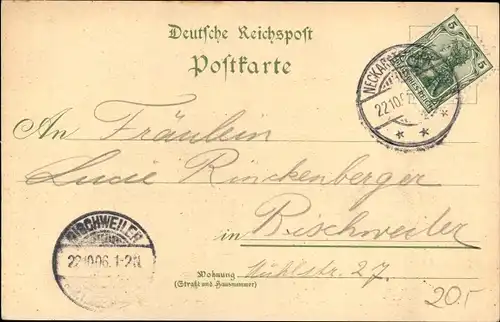 Deutsche Reichspost
Postkarte
5 5
NECKAR
22.10.0
An Fräulein
Lucie Rinckenberger
in Bischweiler
BISCHWEILER
22.10.06. 1-2N
Wohnung Mühlstr. 27.
(Straße und Hausnummer)
20.-